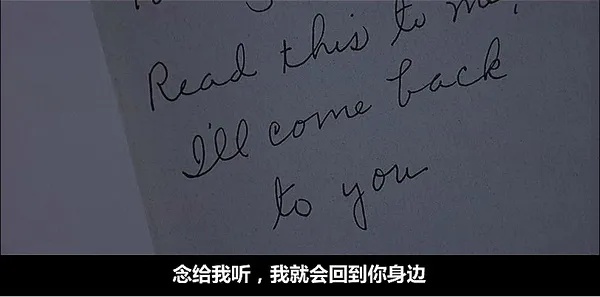 Read this to me,
I'll come back
to you
念给我听，我就会回到你身边